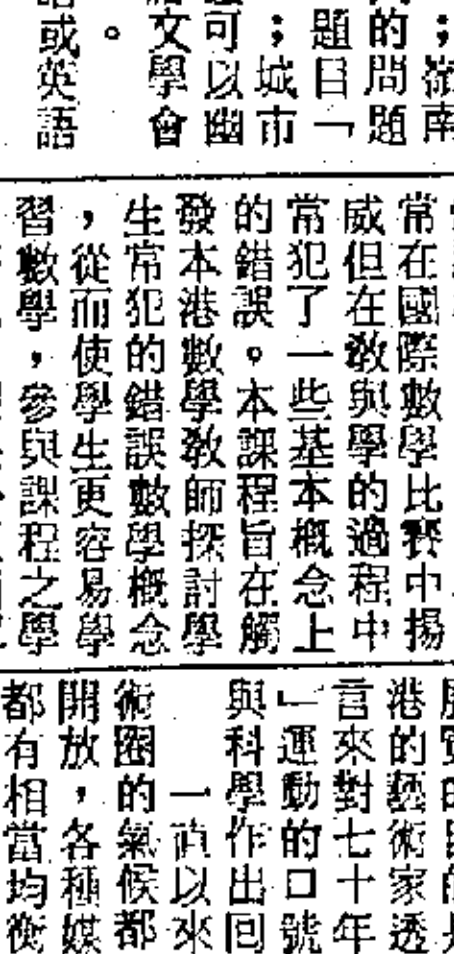 的問題
題目「
；城市
可以幽
文學會
。
或英語
常在國際數學比賽中揚
威但在教與學的過程中
常犯了一些基本概念上
的錯誤。本課程旨在觸
發本港數學教師探討學
生常犯的錯誤數學概念
，從而使學生更容易學
習數學，參與課程之學
港的藝術家透
言來對七十年
」運動的口號
與科學作出回
一直以來
術圈的氣候都
開放，各種媒
都有相當均衡